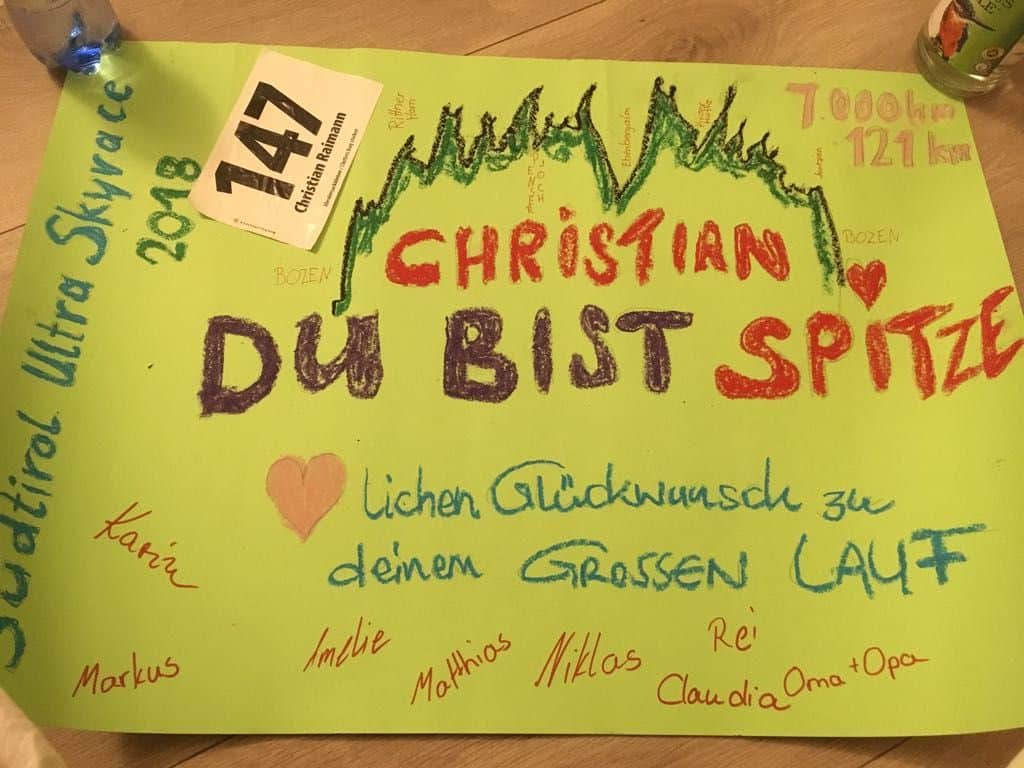 Südtirol Ultra Skyrace
2018
147
Christian Raimann
Rittner
Horn
JOCH
7.000hm
121 km
BOZEN
BOZEN
CHRISTIAN
DU BIST SPITZE
lichen Glückwunsch zu
deinem GROSSEN LAUF
Karin
Markus
Imelie
Matthias
Niklas
Rei
Claudia
Oma + Opa